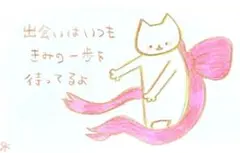 出会いはいつも
きみの一歩を
待ってるよ